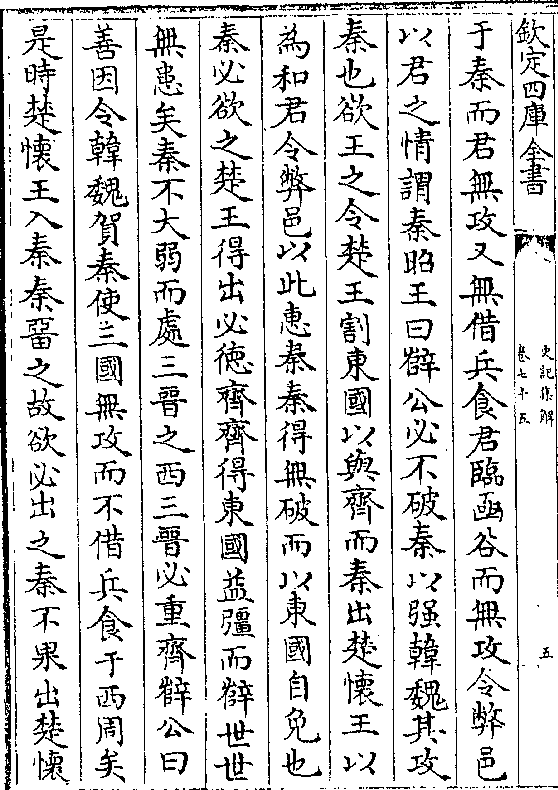 欽定四庫全書
史記集解
卷七十五
五
于秦而君無攻又無借兵食君臨函谷而無攻令弊邑
以君之情謂秦昭王曰薛公必不破秦以强韓魏其攻
秦也欲王之令楚王割東國以與齊而秦出楚懷王以
為和君令弊邑以此惠秦秦得無破而以東國自免也
秦必欲之楚王得出必徳齊齊得東國益彊而薛世世
無患矣秦不大弱而處三晉之西三晉必重齊薛公曰
善因令韓魏賀秦使三國無攻而不借兵食于西周矣
是時楚懷王入秦秦留之故欲必出之秦不果出楚懷